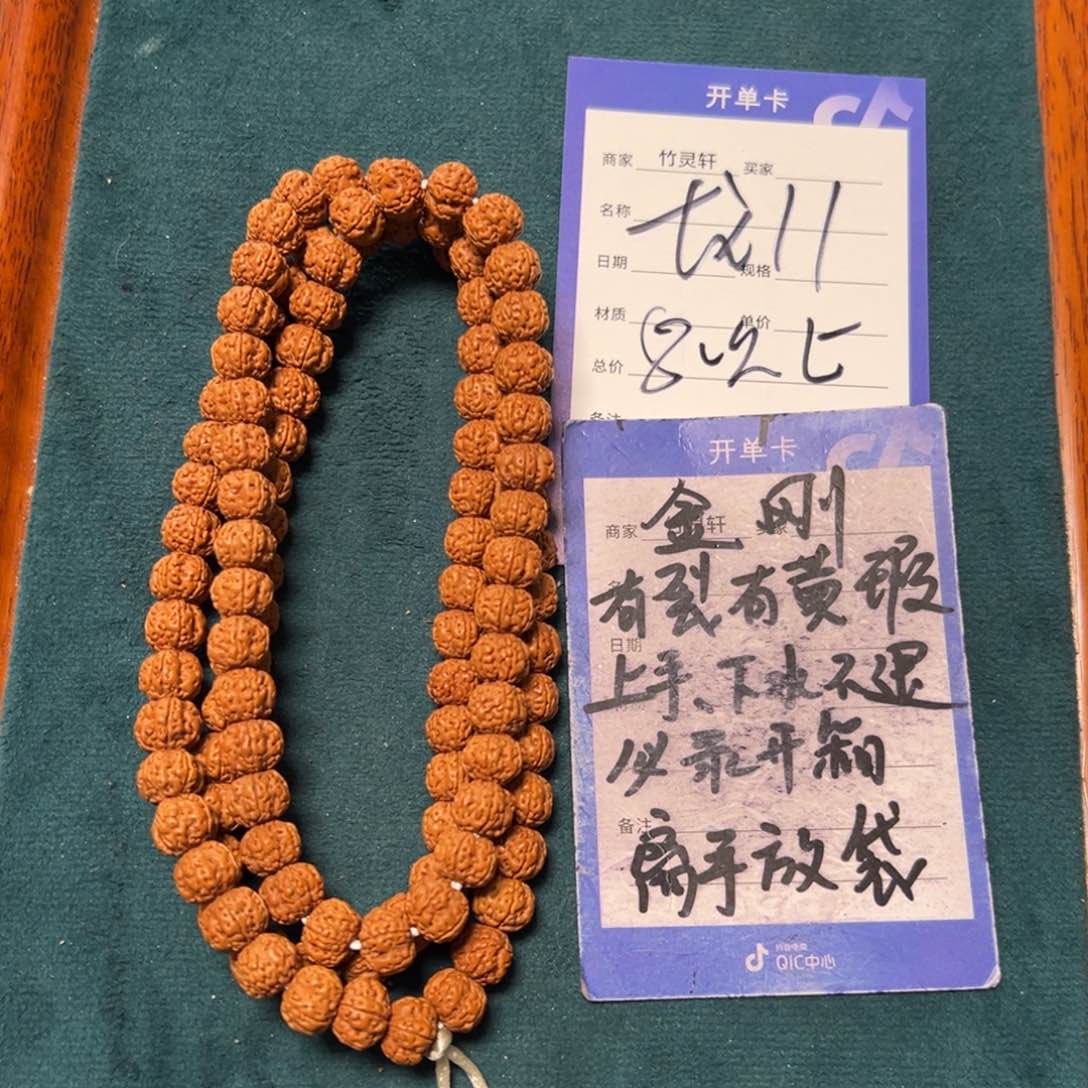 开单卡
商家 竹灵轩 买家
名称
11
日期 规格
材质 单价
总价
备注
开单卡
金刚
商家 轩
有裂有黄瑕
日期
上手、下水不退
必录开箱
备注
离手放袋
抖音电商
QIC中心